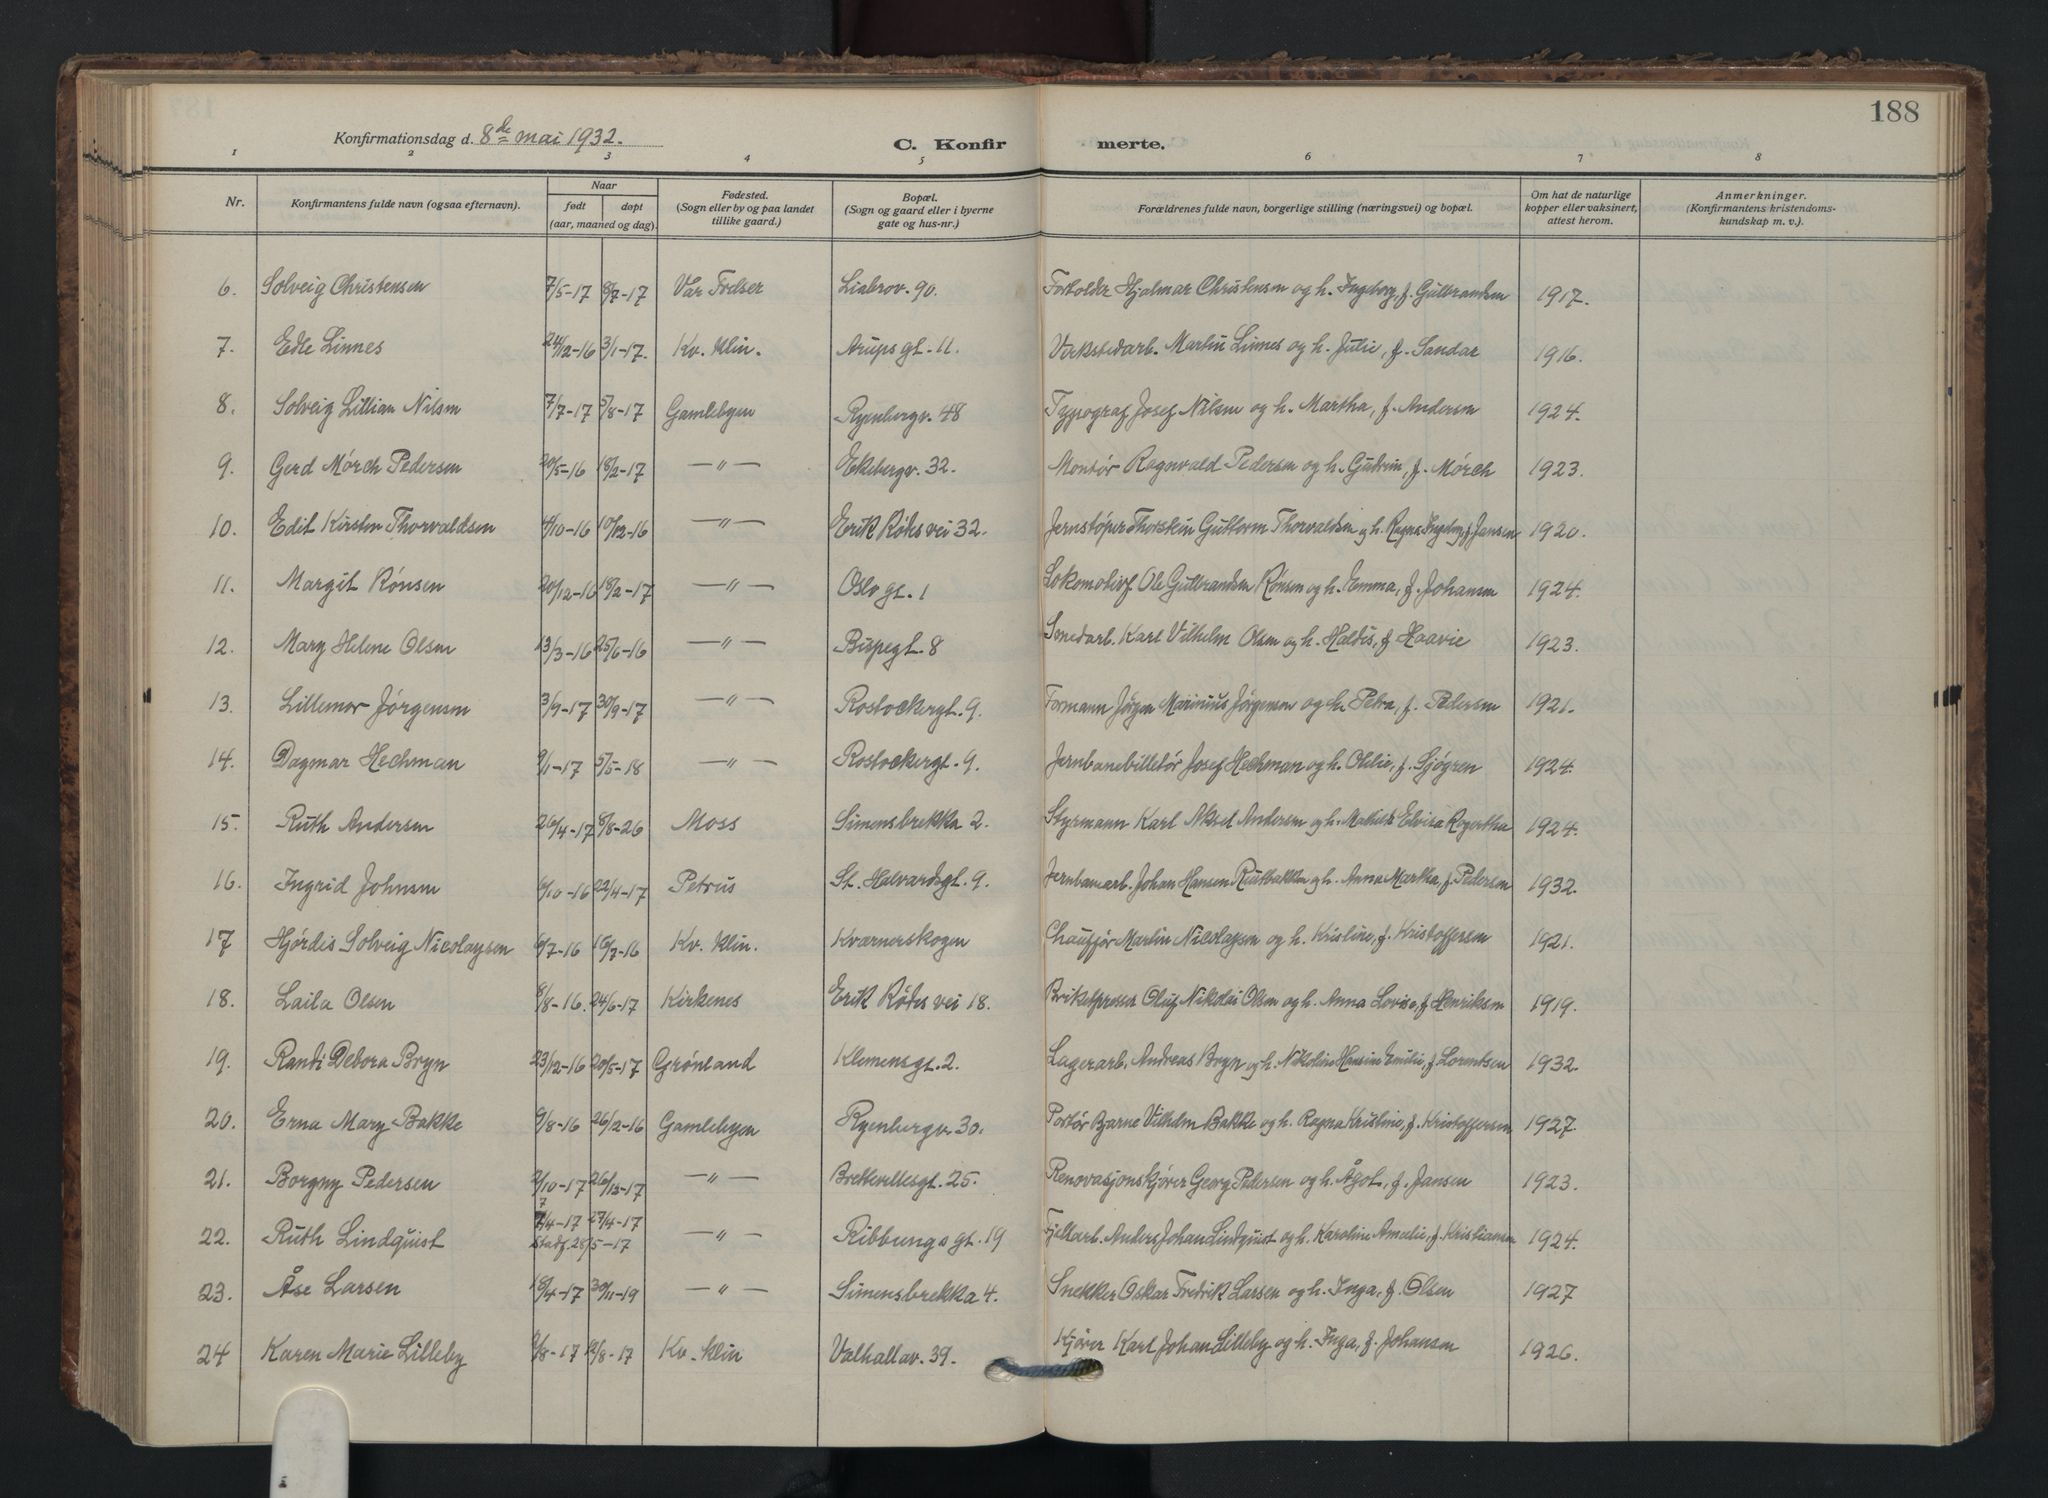 188
Konfirmationsdag d. 8de mai 1932.
C. Konfirmerte.
1 2 3 4 5 6 7 8
Nr.
Konfirmantens fulde navn (ogsaa efternavn).
Naar
født døpt
(aar, maaned og dag).
Fødested.
(Sogn eller by og paa landet
tillike gaard.)
Bopæl.
(Sogn og gaard eller i byerne
gate og hus-nr.)
Forældrenes fulde navn, borgerlige stilling (næringsvei) og bopæl.
Om hat de naturlige
kopper eller vaksinert,
attest herom.
Anmerkninger.
(Konfirmantens kristendoms-
kundskap m. v.).
6. Solveig Christensen 7/5-17 8/7-17 Vår Frelser Liabrov. 90. Hjalmar Christensen og h. Ingeborg, f. Gulbrandsen 1917.
7. Edle Linnes 24/12-16 3/1-17. Kv. klin. Arups gt. 11. Verkstedarb. Martin Linnes og h. Julie, f. Sandar 1916.
8. Solveig Lillian Nilsen 7/7-17 5/8-17 Gamlebyen Ryenbergv. 48 Typograf Josef Nilsen og h. Martha, f. Andersen 1924.
9. Gerd Mørch Pedersen 20/5-16 18/2-17 —〃— Ekebergv. 32. Montør Ragnvald Pedersen og h. Gudrun, f. Mørch 1923.
10. Edit Kirsten Thorvaldsen 4/10-16 10/12-16 —〃— Erik Rødes vei 32. Jernstøper Thorstein Guttorm Thorvaldsen og h. Ragna Ingeborg, f. Jansen 1920.
11. Margit Rønsen 20/12-16 18/2-17 —〃— Oslo gt. 1 Lokomotivf. Ole Gulbrandsen Rønsen og h. Emma, f. Johansen 1924.
12. Mary Helene Olsen 13/3-16 25/6-16 —〃— Bispegt. 8 Smedarb. Karl Vilhelm Olsen og h. Haldis, f. Haavie 1923.
13. Lillemor Jørgensen 3/9-17 30/9-17 —〃— Rostockergt. 9. Formann Jørgen Marinius Jørgensen og h. Petra, f. Pedersen 1921.
14. Dagmar Hechman 9/1-17 5/5-18 —〃— Rostockergt. 9. Jernbanebilletør Josef Hechman og h. Otilie, f. Sjøgren 1924.
15. Ruth Andersen 26/4-17 8/8-26 Moss Simensbrekka 2. Styrmann Karl Aksel Andersen og h. Mathilde Elvira 1924.
16. Ingrid Johnsen 6/10-16 22/4-17 Petrus St. Halvardsgt. 9. Jernbanearb. Johan Hansen og h. Anna Martha, f. Pedersen 1932.
17 Hjørdis Solveig Nicolaysen 6/7-16 15/7-16 Kv. klin. Kværnerskogen Chauffør Martin Nicolaysen og h. Kristine, f. Kristoffersen 1921.
18. Laila Olsen 8/8-16. 24/6-17 Kirkenes Erik Rødes vei 18. Briketpresser Oluf Nikolai Olsen og h. Anna Lovise, f. Henriksen 1919.
19. Randi Debora Bryn 23/12-16 20/5-17 Grønland Klemensgt. 2. Lagerarb. Andreas Bryn og h. Nikoline Hansine Emilie, f. Lorentsen 1932.
20. Erna Mary Bakke 9/8-16 26/12-16 Gamlebyen Ryenbergv. 30. Portør Bjarne Vilhelm Bakke og h. Ragna Kristine, f. Kristoffersen 1927.
21. Borgny Pedersen 2/10-17 26/12-17 —〃— Brekevillesgt. 25. Renovasjonskjører Georg Pedersen og h. Ågot, f. Jansen 1923.
22. Ruth Lindquist 7/4-17 27/4-17 —〃— Ribbungs gt. 19 Fjellarb. Anders Johan Lindquist og h. Karoline Amelie, f. Kristiansen 1924.
stadf. 28/5-17
23. Åse Larsen 18/4-17 30/11-19 —〃— Simensbrekka 4. Snekker Oskar Fredrik Larsen og h. Inga, f. Olsen 1927
24 Karen Marie Lilleby 2/8-17 12/8-17 Kv. klin Valhallav. 39. Kjører Karl Johan Lilleby og h. Inga, f. Johansen 1926.